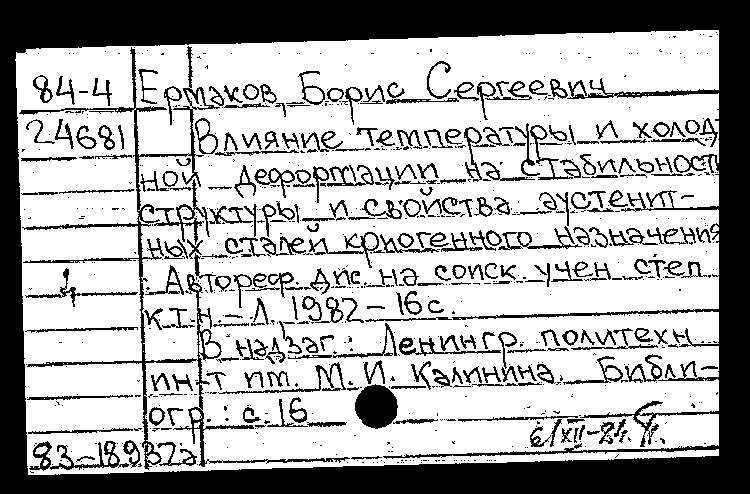 84-4 Ермаков, Борис Сергеевич
24681 Влияние температуры и холод
ной деформации на стабильность
структуры и свойства аустенит-
ных сталей криогенного назначения
: Автореф. дис. на соиск. учен степ
к.т.н. - Л., 1982 - 16 с.
В надзаг.: Ленингр. политехн
ин-т им. М.И. Калинина. Библи-
огр.: с. 16
83-18937а